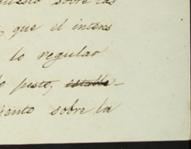 puesto sobre las
, que el interes
lo regular
peste,
iento sobre la